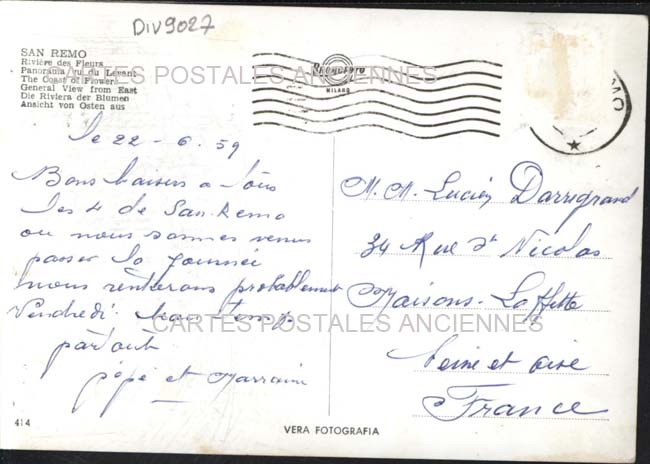 DIV9027
SAN REMO
Rivière des Fleurs
Panorama vu du Levant
The Coast of Flowers
General View from East
Die Riviera der Blumen
Ansicht von Osten aus
CARTES POSTALES ANCIENNES
MILANO
le 22 - 6. 59
Bons baisers a tous
les 4 de San-Remo
ou nous sommes venus
passer la journée
nous rentrerons probablement
Vendredi. beau temps
partout
pépé et Marraine
M. M. Lucien Darrigrand
34 Rue St Nicolas
Maisons-Laffitte
Seine et oise
France
CARTES POSTALES ANCIENNES
414
VERA FOTOGRAFIA